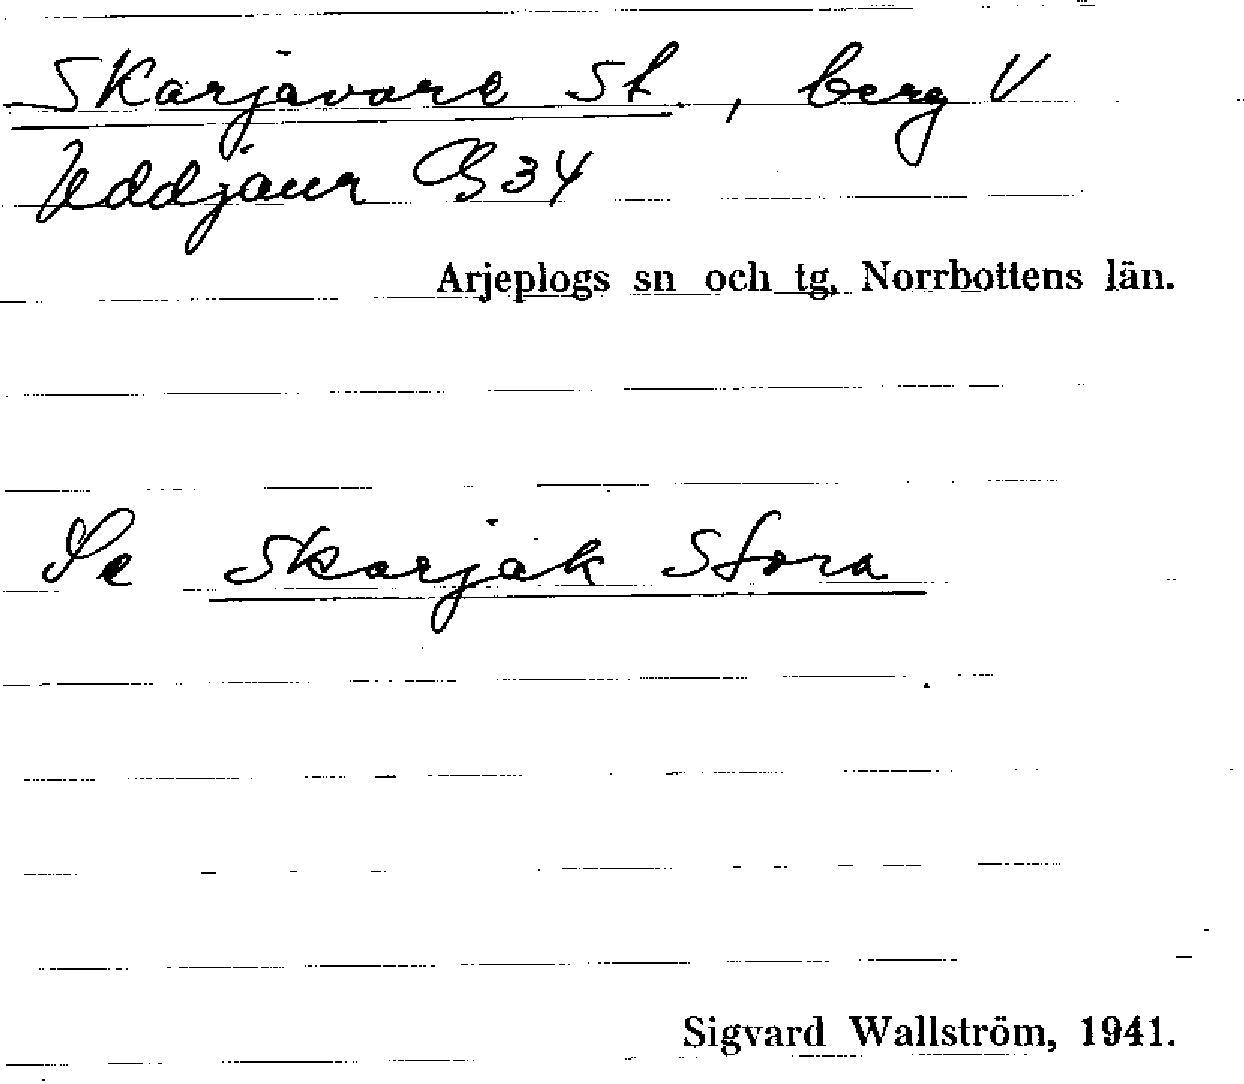 Skarjavare St., berg V
Uddjaur G34
Arjeplogs sn och tg. Norrbottens län.
Se Skarjak Stora
Sigvard Wallström, 1941.